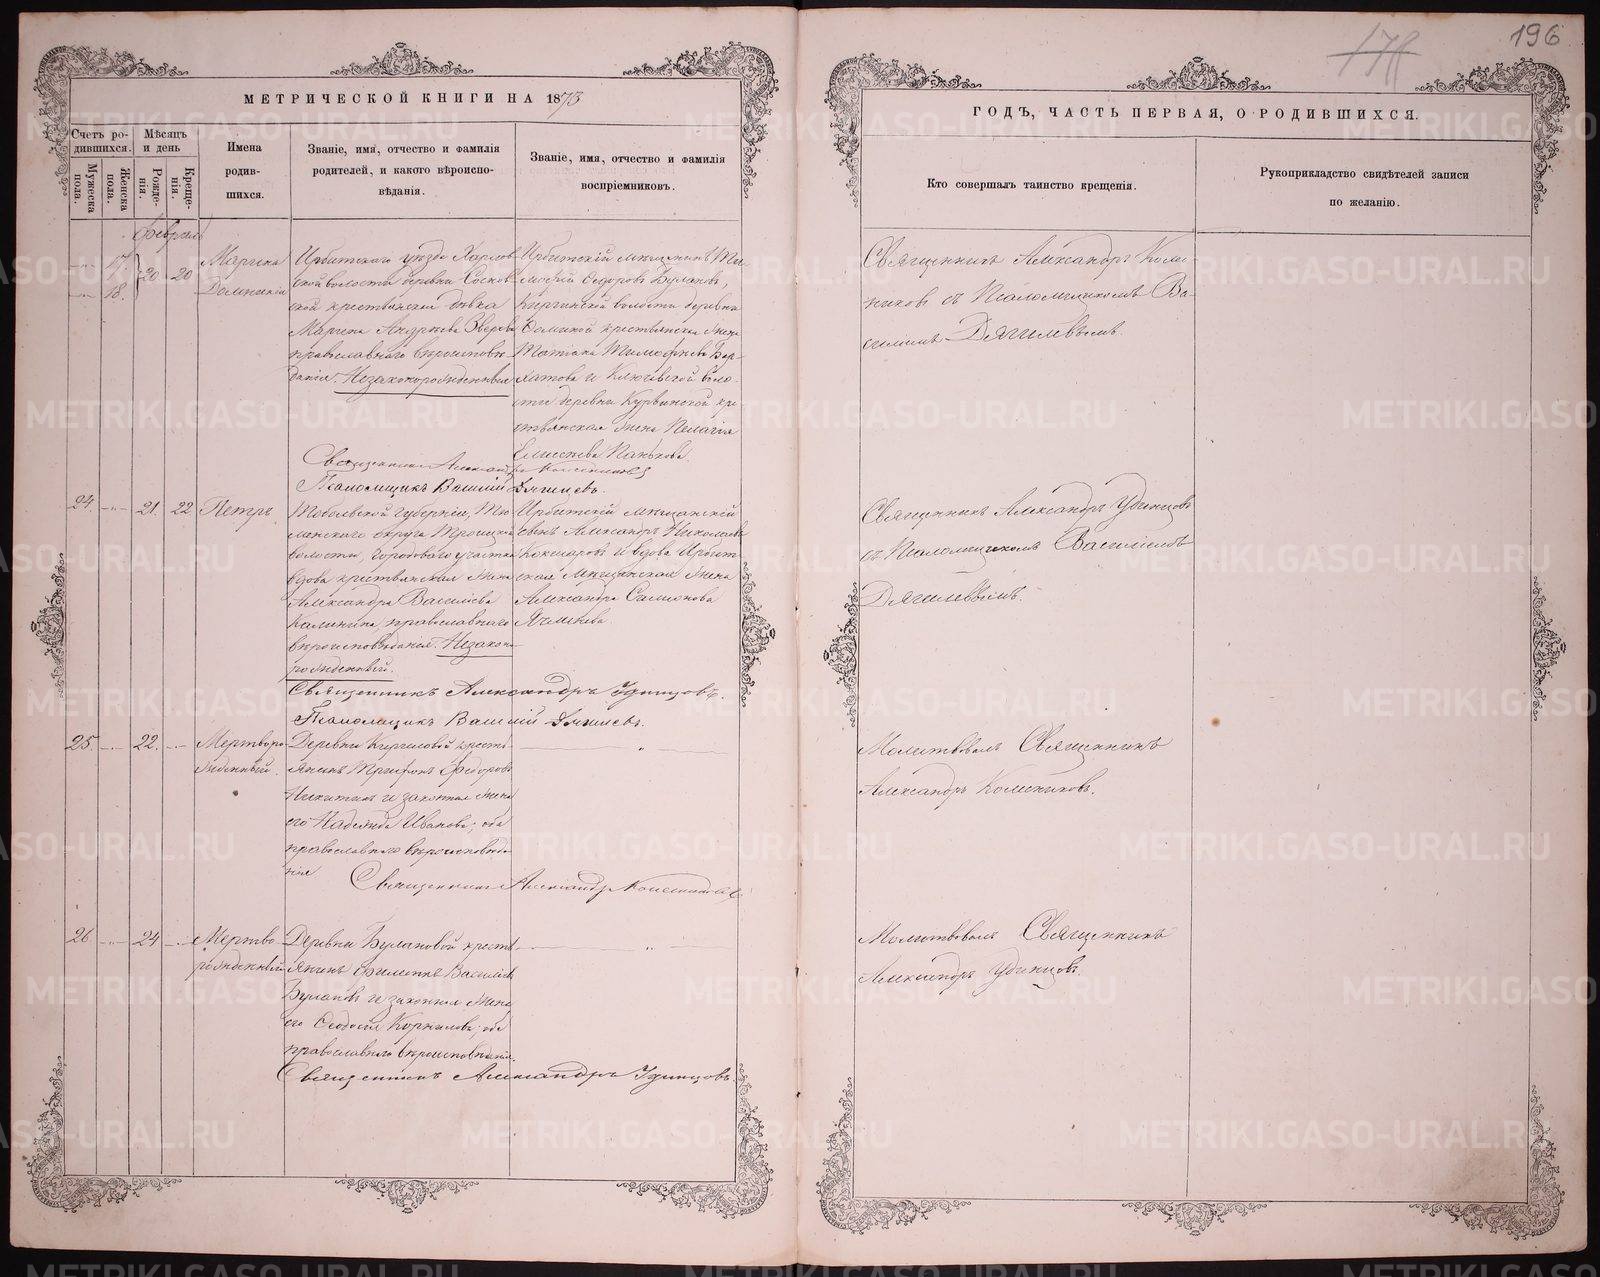 178
196
МЕТРИЧЕСКОЙ КНИГИ НА 1873
ГОДЪ, ЧАСТЬ ПЕРВАЯ, О РОДИВШИХСЯ.
Счетъ ро-
дившихся.
Мужеска
пола.
Женска
пола.
Мѣсяцъ
и день
Рожде-
нія.
Креще-
нія.
Имена
родив-
шихся.
Званіе, имя, отчество и фамилія
родителей, и какого вѣроиспо-
вѣданія.
Званіе, имя, отчество и фамилія
воспріемниковъ.
Кто совершалъ таинство крещенія.
Рукоприкладство свидѣтелей записи
по желанію.
Февраль
17
18.
20
20
Марина
Ирбитскаго уѣзда Харлов-
ской волости деревни
ской крестьянская дѣвка
Марина Андреева Зверева
православнаго вѣроисповѣ-
данія. Незаконнорожденныя
Ирбитскій мѣщанинъ Ти-
мофей Ѳедоровъ Булановъ,
Киргинской волости деревни
крестьянская жена
Татіана Тимофеева
и Ключевской воло-
сти деревни Курьинской кре-
стьянская жена Пелагія
Елисеева Панькова.
Священникъ Александръ
Псаломщикъ Василій Дягилевъ.
Священникъ Александръ
съ Псаломщикомъ Ва-
силіемъ Дягилевымъ.
24
21
22
Петръ
Тобольской губерніи, Тю-
менскаго округа Троицкой
волости, городоваго участка
вдова крестьянская жена
Александра Васильева
Калинина, православнаго
вѣроисповѣданія. Незаконно-
рожденный.
Ирбитскій мѣщанскій
сынъ Александръ Николаевъ
Кокшаровъ и вдова Ирбит-
ская мѣщанская жена
Александра Самсонова
Ячменева.
Священникъ Александръ Удинцовъ.
Псаломщикъ Василій Дягилевъ.
Священникъ Александръ Удинцовъ
съ Псаломщикомъ Василіемъ
Дягилевымъ.
25
22.
Мертворо-
жденный.
Деревни Киргиловой кресть-
янинъ Трифонъ Федоровъ
Никитинъ и законная жена
его Надежда Иванова; оба
православнаго вѣроисповѣда-
нія
Священникъ Александръ
Молитвовалъ Священникъ
Александръ
26
24
Мертво-
рожденный
Деревни Булановой кресть-
янинъ Филиппъ Васильевъ
Булановъ и законная жена
его Ѳеодосія Корнилова; оба
православнаго вѣроисповѣданія.
Священникъ Александръ Удинцовъ.
Молитвовалъ Священникъ
Александръ Удинцовъ.
METRIKI.GASO-URAL.RU